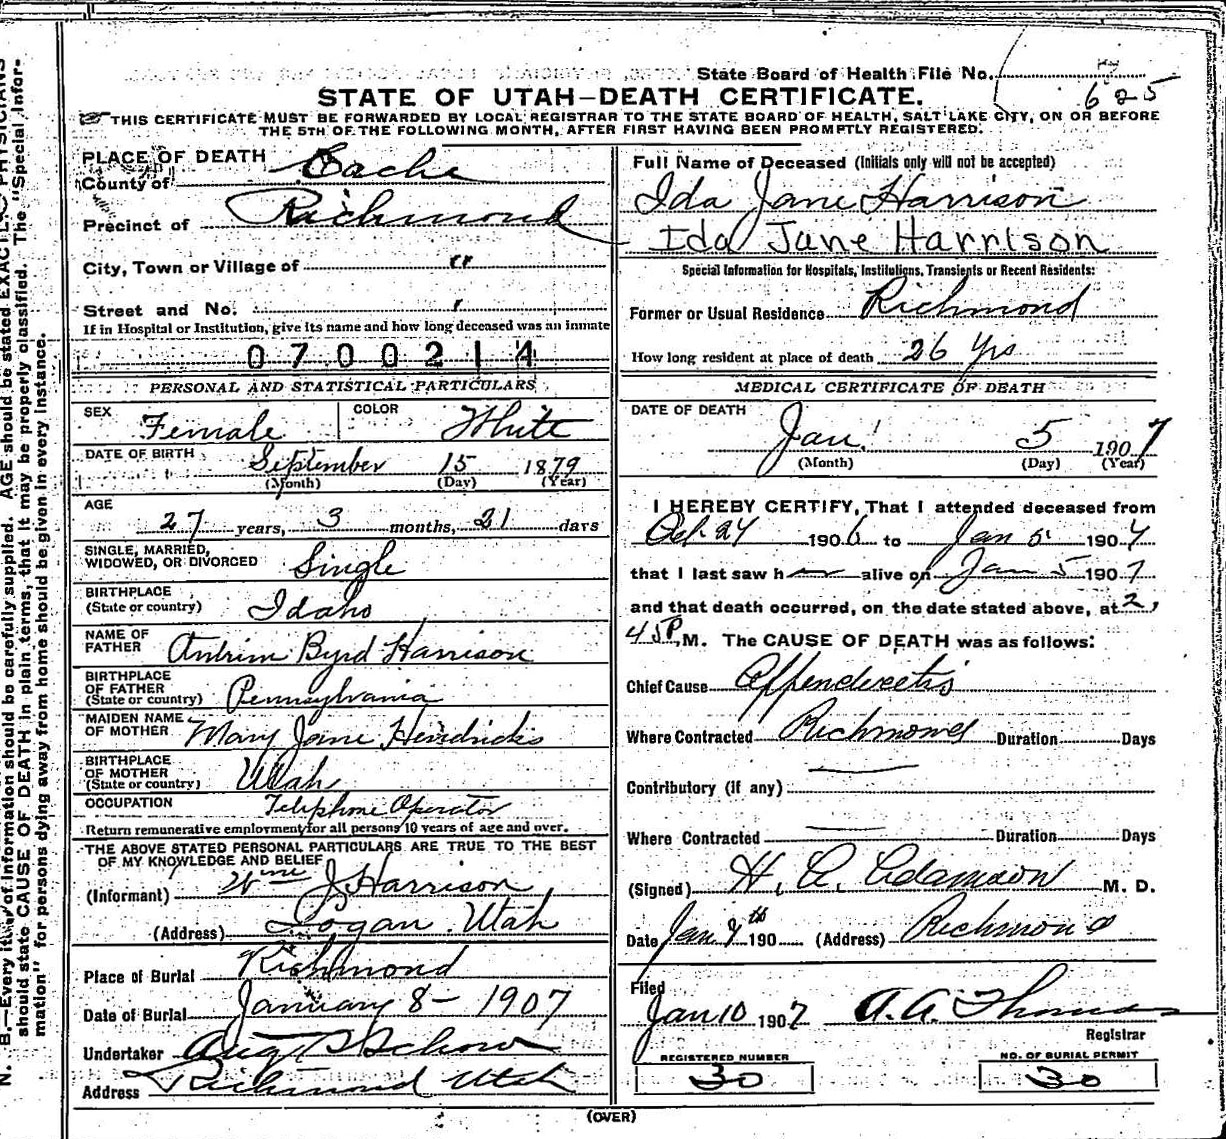 State Board of Health File No.
625
STATE OF UTAH—DEATH CERTIFICATE.
THIS CERTIFICATE MUST BE FORWARDED BY LOCAL REGISTRAR TO THE STATE BOARD OF HEALTH, SALT LAKE CITY, ON OR BEFORE
THE 5TH OF THE FOLLOWING MONTH, AFTER FIRST HAVING BEEN PROMPTLY REGISTERED.
PLACE OF DEATH
County of Cache
Precinct of Richmond
City, Town or Village of "
Street and No. "
If in Hospital or Institution, give its name and how long deceased was an inmate
0700214
PERSONAL AND STATISTICAL PARTICULARS
SEX Female COLOR White
DATE OF BIRTH September 15 1879
(Month) (Day) (Year)
AGE
27 years, 3 months, 21 days
SINGLE, MARRIED,
WIDOWED, OR DIVORCED Single
BIRTHPLACE
(State or country) Idaho
NAME OF
FATHER Antrim Byrd Harrison
BIRTHPLACE
OF FATHER
(State or country) Pennsylvania
MAIDEN NAME
OF MOTHER Mary Jane Hendricks
BIRTHPLACE
OF MOTHER
(State or country) Utah
OCCUPATION Telephone Operator
Return remunerative employment for all persons 10 years of age and over.
THE ABOVE STATED PERSONAL PARTICULARS ARE TRUE TO THE BEST
OF MY KNOWLEDGE AND BELIEF
(Informant) J. Harrison
(Address) Logan Utah
Place of Burial Richmond
Date of Burial January 8 - 1907
Undertaker Aug S Schow
Address Richmond Utah
Full Name of Deceased (Initials only will not be accepted)
Ida Jane Harrison
Ida Jane Harrison
Special Information for Hospitals, Institutions, Transients or Recent Residents:
Former or Usual Residence Richmond
How long resident at place of death 26 yrs
MEDICAL CERTIFICATE OF DEATH
DATE OF DEATH
Jan. 5 1907
(Month) (Day) (Year)
I HEREBY CERTIFY, That I attended deceased from
Oct. 24 1906 to Jan 5 1907
that I last saw her alive on Jan 5 1907
and that death occurred, on the date stated above, at 2,
45 P. M. The CAUSE OF DEATH was as follows:
Chief Cause Appendicetis
Where Contracted Richmond Duration Days
Contributory (if any)
Where Contracted Duration Days
(Signed) H. A. Adamson M. D.
Date Jan 190 (Address) Richmond
Filed
Jan 10 1907 A. A. Thomas
Registrar
REGISTERED NUMBER
30
NO. OF BURIAL PERMIT
30
(OVER)
N. B.—Every item of information should be carefully supplied. AGE should be stated EXACTLY. PHYSICIANS
should state CAUSE OF DEATH in plain terms, that it may be properly classified. The "Special Infor-
mation" for persons dying away from home should be given in every instance.